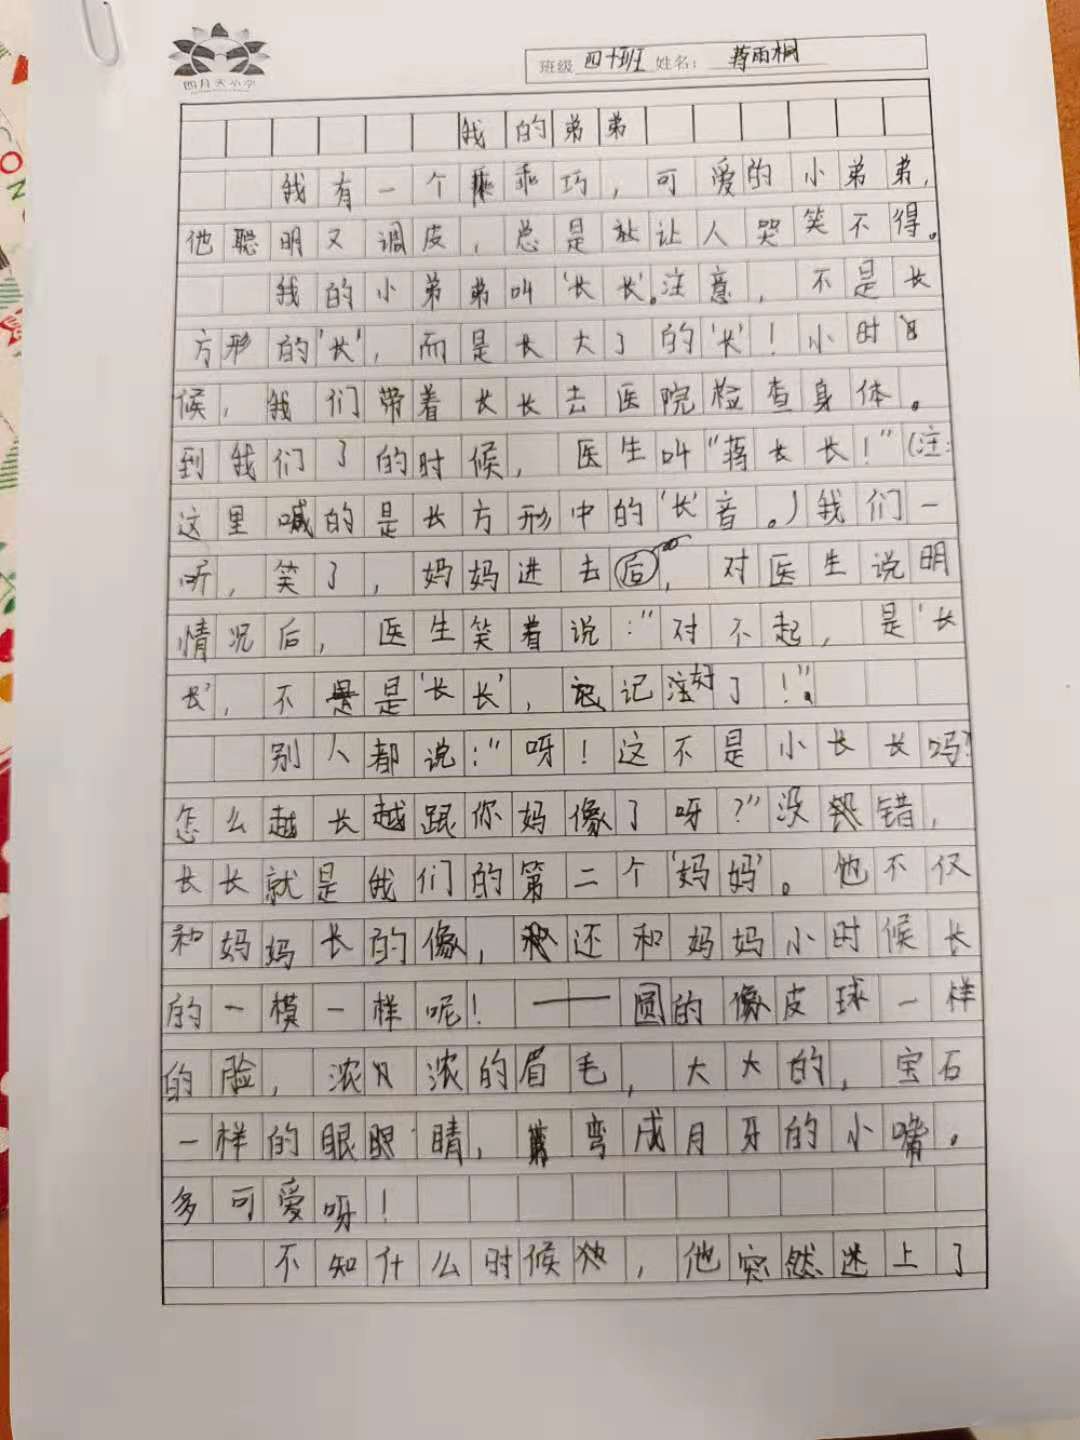 四月天小学
班级 四十班 姓名： 蒋雨桐
我的弟弟
我有一个乖巧，可爱的小弟弟，
他聪明又调皮，总是让人哭笑不得。
我的小弟弟叫‘长长’。注意，不是长
方形的‘长’，而是长大了的‘长’！小时
候，我们带着长长去医院检查身体。
到我们了的时候，医生叫“蒋长长！”（注：
这里喊的是长方形中的‘长’音。）我们一
听，笑了，妈妈进去，对医生说明
情况后，医生笑着说：“对不起，是‘长
长’，不是‘长长’，记注好了！”。
别人都说：“呀！这不是小长长吗？
怎么越长越跟你妈像了呀？”没错，
长长就是我们的第二个‘妈妈’。他不仅
和妈妈长的像，还和妈妈小时候长
的一模一样呢！——圆的像皮球一样
的脸，浓浓的眉毛，大大的，宝石
一样的眼睛，弯成月牙的小嘴。
多可爱呀！
不知什么时候，他突然迷上了